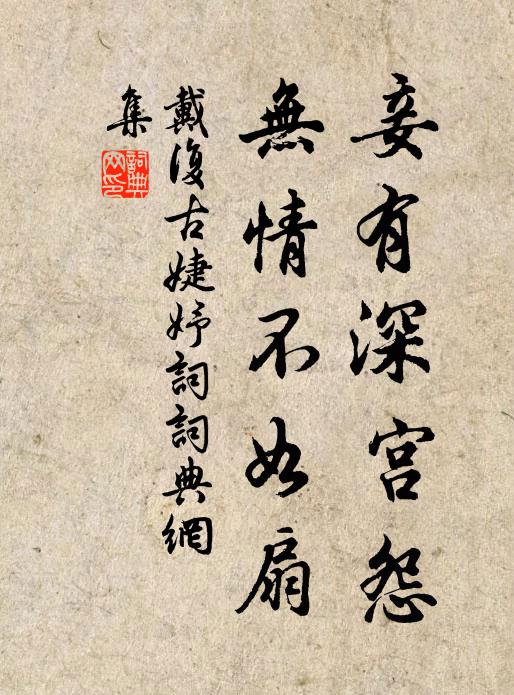 妾有深宫怨
無情不如扇
戴復古婕妤詞詞典網
集
詞典网印